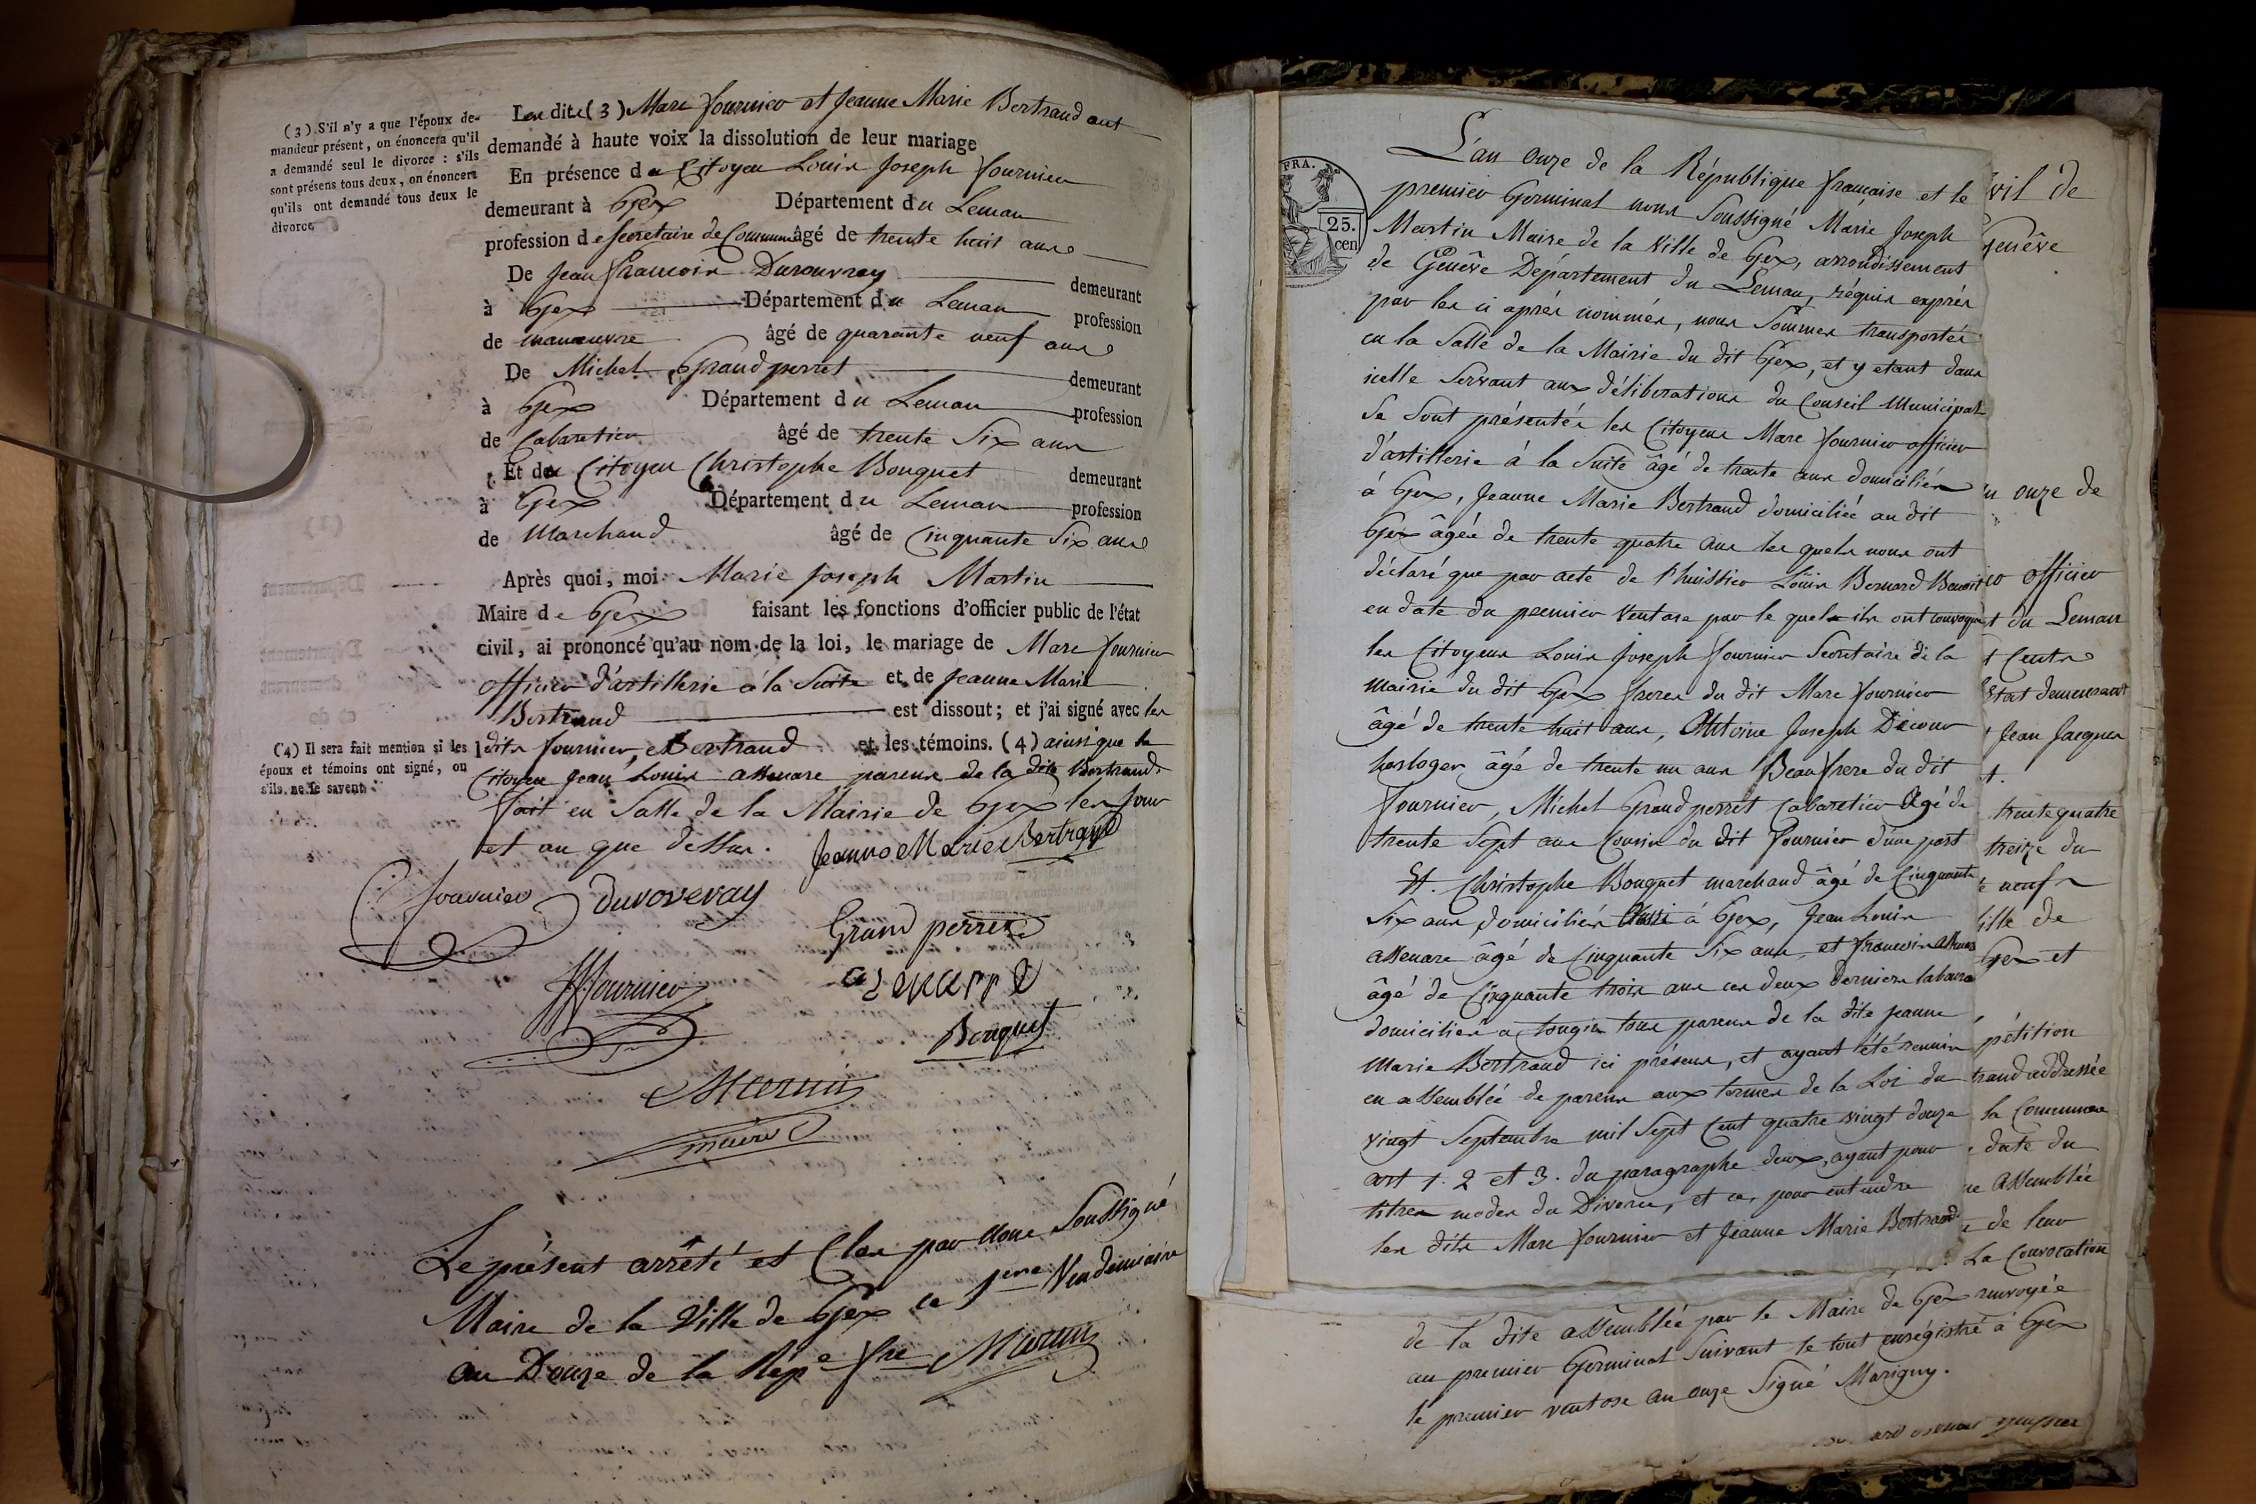 (3) S'il n'y a que l'époux de-
mandeur présent, on énoncera qu'il
a demandé seul le divorce : s'ils
sont présens tous deux, on énoncera
qu'ils ont demandé tous deux le
divorce.
Les dits (3) Marc fournier et Jeanne Marie Bertrand ont
demandé à haute voix la dissolution de leur mariage
En présence du Citoyen Louis Joseph fournier
demeurant à Gex Département du Leman
profession de secretaire de Commune âgé de trente huit ans
De Jean françois Durouvray demeurant
à Gex Département du Leman profession
de manœuvre âgé de quarante neuf ans
De Michel Grandperret demeurant
à Gex Département du Leman profession
de Cabaretier âgé de trente Six ans
Et du Citoyen Christophe Bouquet demeurant
à Gex Département du Leman profession
de Marchand âgé de Cinquante Six ans
Après quoi, moi Marie Joseph Martin
Maire de Gex faisant les fonctions d'officier public de l'état
civil, ai prononcé qu'au nom de la loi, le mariage de Marc fournier
officier d'artillerie à la Suite et de Jeanne Marie
Bertrand est dissout; et j'ai signé avec les
dits fournier, Bertrand et les témoins. (4) ainsi que le
(4) Il sera fait mention si les
époux et témoins ont signé, ou
s'ils ne le savent.
Citoyen Jean Louis assenare parens de la dite Bertrand.
fait en Salle de la Mairie de Gex les jour
et an que dessus. Jeanne Marie Bertrand
fournier Duroveray
Grand perret
fournier
Bouquet
Martin
maire
Le présent arrêté et Clos par nous Soussigné
Maire de la Ville de Gex ce 1ere Vendemiaire
an Douze de la Répe fre Martin
FRA.
25.
cen
L'an onze de la République française et le
premier Germinal nous Soussigné Marie Joseph
Martin Maire de la Ville de Gex, arrondissement
de Genêve Département du Leman, réquis exprès
par les ci après nommés, nous Sommes transportés
en la Salle de la Mairie du dit Gex, et y etant dans
icelle Servant aux déliberations du Conseil Municipal
Se Sont présentés les Citoyens Marc fournier officier
d'artillerie à la Suite âgé de trente ans domiciliés
à Gex, Jeanne Marie Bertrand domiciliée au dit
Gex âgée de trente quatre ans les quels nous ont
déclaré que par acte de l'huissier Louis Bernard Benoit
en date du premier Ventose par le quel ils ont convoqué
les Citoyens Louis Joseph fournier Secretaire de la
Mairie du dit Gex freres du dit Marc fournier
âgé de trente huit ans, Antoine Joseph Decour
horloger âgé de trente un ans Beau frere du dit
fournier, Michel Grand perret Cabaretier Agé de
trente Sept ans Cousin du dit fournier d'une part
Et. Christophe Bouquet marchand âgé de Cinquante
Six ans domiciliés Aussi à Gex, Jean Louis
assenare âgé de Cinquante Six ans, et françois
âgé de Cinquante trois ans ces deux derniers
domiciliés a tougin tous parens de la dite Jeanne
Marie Bertrand ici présens, et ayant été reunis
en assemblée de parens aux termes de la Loi du
vingt Septembre mil Sept Cent quatre vingt douze
art 1. 2 et 3. du paragraphe deux, ayant pour
titres modes du Divorce, et ce, pour entendre
les dits Marc fournier et Jeanne Marie Bertrand
vil de
Genêve
onze de
officier
du Leman
Cents
demeurant
Jean Jacques
trente quatre
treize du
neuf
ville de
Gex et
pétition
addressée
la Commune
date du
Assemblée
de leur
La Convocation
de la dite assemblée par le Maire de Gex renvoyée
au premier Germinal Suivant le tout enrégistré à Gex
le premier ventose an onze Signé Marigny.